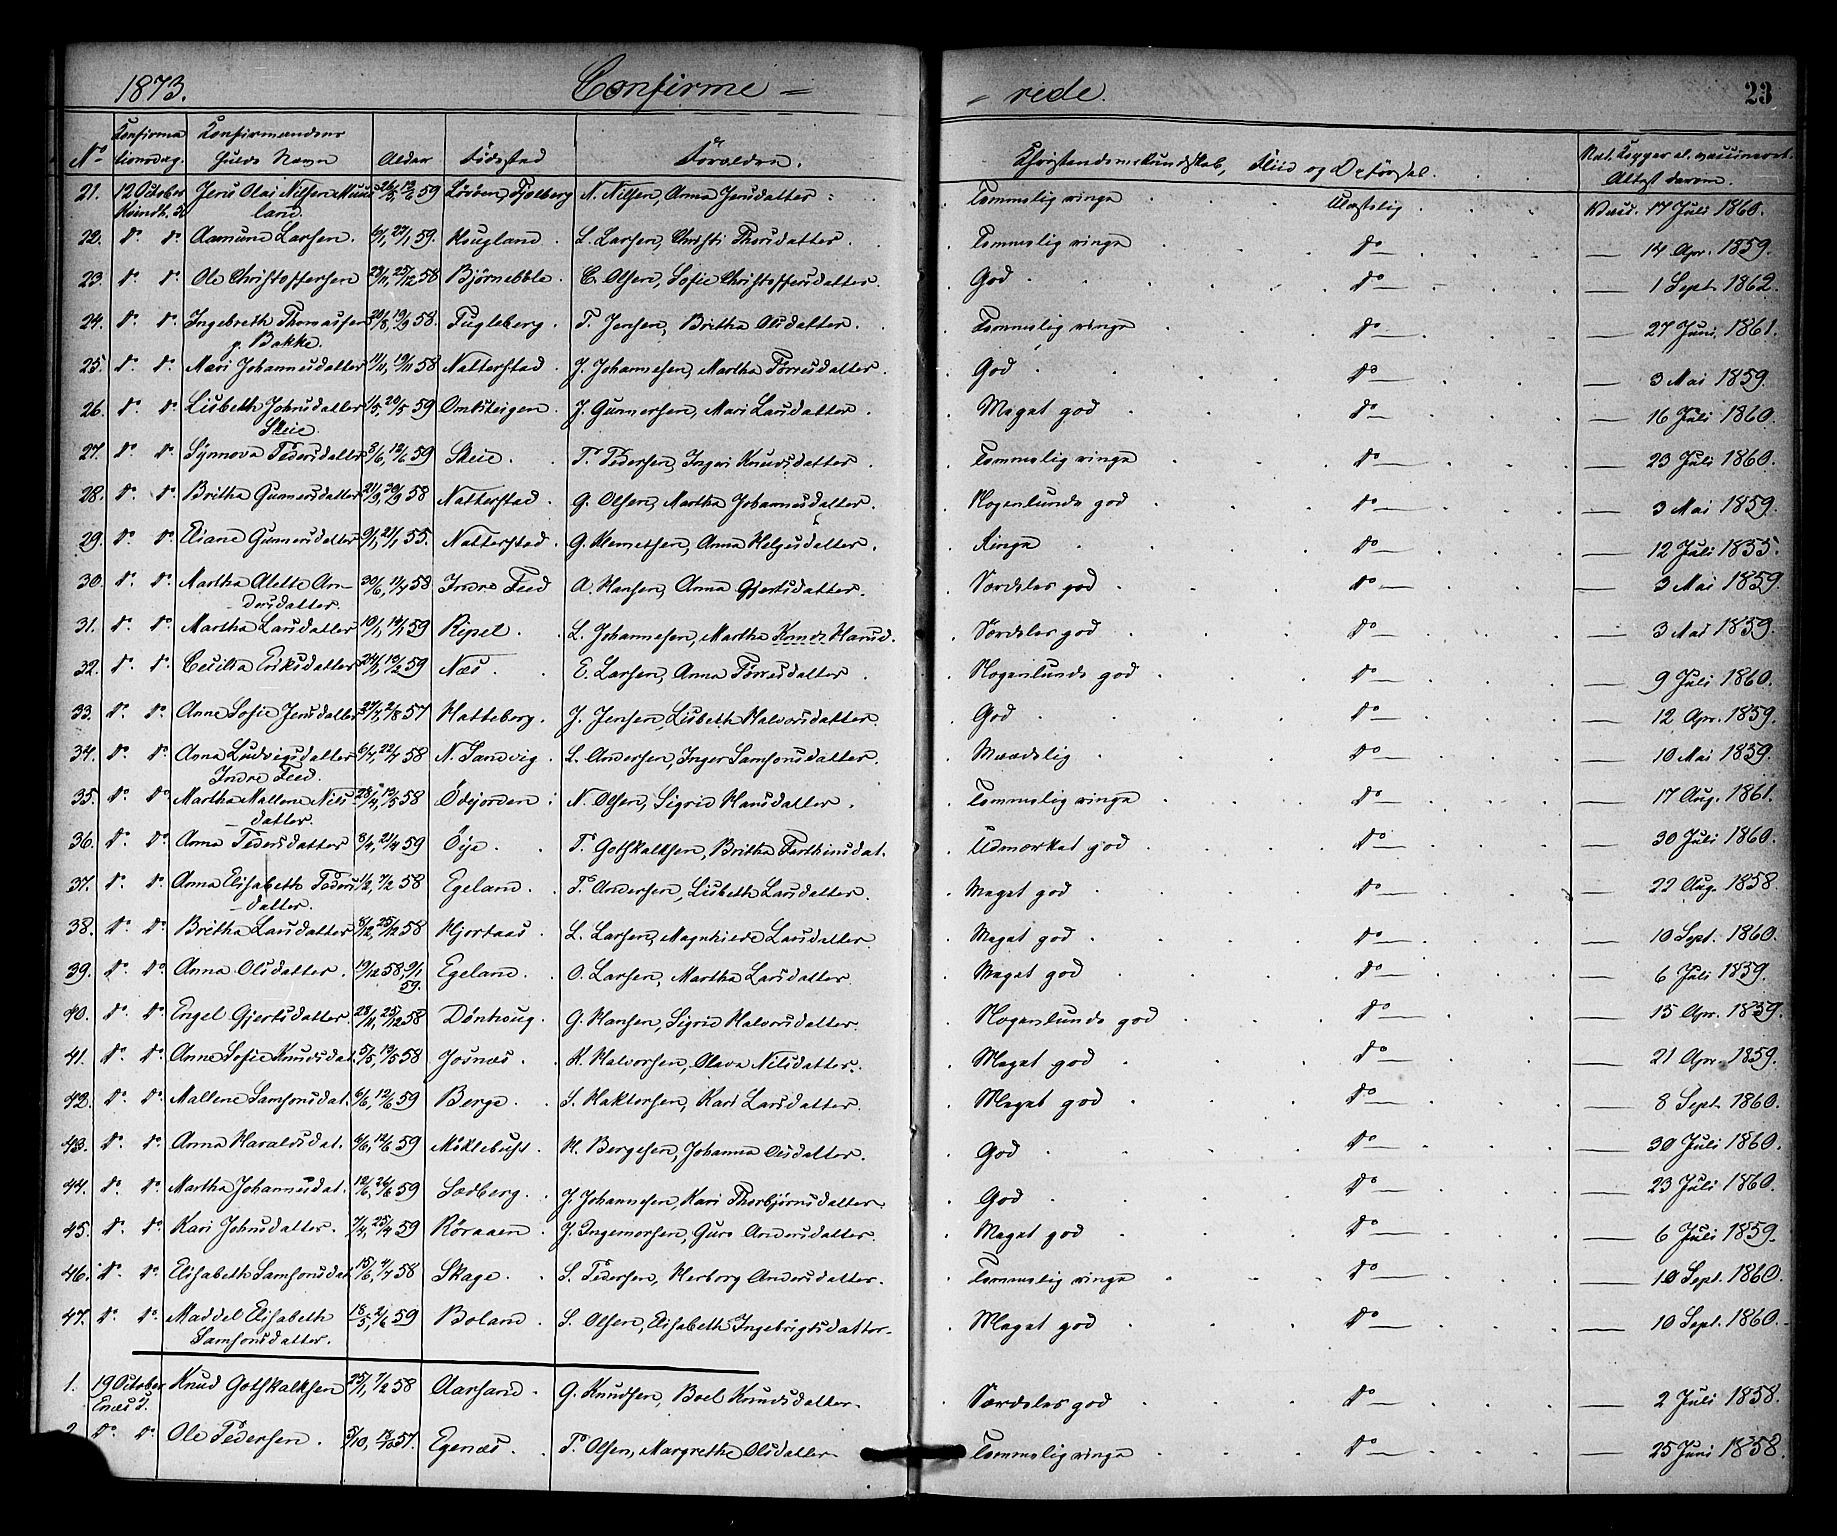 1873. Confirme = = rede. 23
No Konfirma Konfirmandens Alder Födested Foreldre. Khristendomskundskab, Flid og Opförsel. Nat. Kopper el. vaccineret.
tionsdag. fulde Navn Attest derom.
21. 12 October Jens Olai Nilsen Muus 59 Lörben, Fjelberg N. Nilsen, Anna Jensdatter Temmelig ringe Kristelig Vacc. 17 Juli 1860.
Kvindh. K land.
22. do do Aamund Larsen. 59. Hougland. L. Larsen, Christi Thorsdatter. Temmelig ringe do 14 Apr. 1859.
23. do do Ole Christoffersen 23/11, 25/12 58 Björnebble. C. Olsen, Sofie Christoffersdatter. God do 1 Sept. 1862.
24. do do Ingebreth Thomassen 20/8, 19/9 58. Fugleberg. T. Jensen, Britha Olsdatter. Temmelig ringe do 27 Juni, 1861.
p. Bakke.
25. do do Mari Johannesdatter 58 Natterstad. J. Johannesen, Martha Törresdatter. God do 3 Mai 1859.
26. do do Lisbeth Johnsdatter 59 Omksteigen. J. Gunnersen, Mari Larsdatter. Meget god do 16 Juli 1860.
Skeie.
27. do do Synnova Pedersdatter 3/6, 12/6 59 Skeie. P. Pedersen, Ingeri Knudsdatter. Temmelig ringe do 23 Juli 1860.
28. do do Britha Gunnersdatter 58 Natterstad. G. Olsen, Martha Johannesdatter. Nogenlunde god do 3 Mai 1859.
29. do do Eliane Gunnersdatter 55. Natterstad. G. Klemetsen, Anna Helgesdatter. Ringe do 12 Juli 1855.
30. do do Martha Alette An= 58 Indre Feed A. Hansen, Anna Gjertsdatter. Særdeles god do 3 Mai 1859
dersdatter.
31. do do Martha Larsdatter 59 Ripel. L. Johannesen, Martha Knuds. Harud. Særdeles god do 3 Mai 1859.
32. do do Cecilia Eriksdatter 59 Næs. E. Larsen, Anna Törresdatter. Nogenlunde god do 9 Juli 1860.
33. do do Anne Sofie Jensdatter 57 Hatteberg. J. Jensen, Lisbeth Halvorsdatter. God do 12 Apr. 1859.
34. do do Anna Ludvigsdatter 58 N. Sandvig. L. Andersen, Inger Samsonsdatter. Maadelig do 10 Mai 1859.
Indre Feed.
35. do do Martha Mallene Nils= 58 Ödejorden. N. Olsen, Sigrid Hansdatter. Temmelig ringe do 17 Aug. 1861.
datter.
36. do do Anna Pedersdatter 59 Öije. P. Gotskalksen, Britha Farthinsdat. Udmerket god do 30 Juli 1860.
37. do do Anna Elisabeth Peders 58 Egeland. P. Andersen, Lisbeth Larsdatter. Meget god do 22 Aug. 1858.
datter.
38. do do Britha Larsdatter 8/12, 25/12 58 Hjortaas. L. Larsen, Magnhilde Larsdatter. Meget god do 10 Sept. 1860.
39. do do Anna Olsdatter. 19/12 58, 9/1 Egeland. O. Larsen, Martha Larsdatter. Meget god do 6 Juli 1859.
59.
40. do do Engel Gjertsdatter. 28/11, 25/12 58 Dönhoug. G. Hansen, Sigrid Halvorsdatter. Nogenlunde god do 15 Apr. 1859.
41. do do Anne Sofie Knudsdat. 58 Josnæs. K. Halvorsen, Olava Nilsdatter. Meget god do 21 Apr. 1859.
42. do do Mallene Samsonsdat. 6/6, 12/6 59 Berge. S. Haktorsen, Kari Larsdatter. Meget god do 8 Sept. 1860.
43. do do Anna Haraldsdat. 59 Möklebust. H. Bergesen, Johanna Olsdatter. God do 30 Juli 1860.
44. do do Martha Johannesdat. 12/6, 26/6 59 Sædberg. J. Johannesen, Kari Thorbjörnsdatter. God do 23 Juli 1860.
45. do do Kari Johnsdatter. 7/4, 25/4 59 Röraaen. J. Ingemorsen, Guro Andersdatter. Meget god do 6 Juli 1859.
46. do do Elisabeth Samsonsdat. 58 Skage. S. Pedersen, Herborg Andersdatter. Temmelig ringe do 10 Sept. 1860.
47. do do Maddel Elisabeth 18/5, 2/6 59 Boland. S. Olsen, Elisabeth Ingebrigtsdatter. Meget god do 10 Sept. 1860.
Samsonsdatter.
1. 19 October Knud Gotskalksen 25/1, 7/2 58 Aarsand. G. Knudsen, Boel Knudsdatter. Særdeles god do 2 Juli 1858.
Enæs K.
2. do do Ole Pedersen. 57. Egenæs. P. Olsen, Margrethe Olsdatter. Temmelig ringe do 25 Juni 1858.